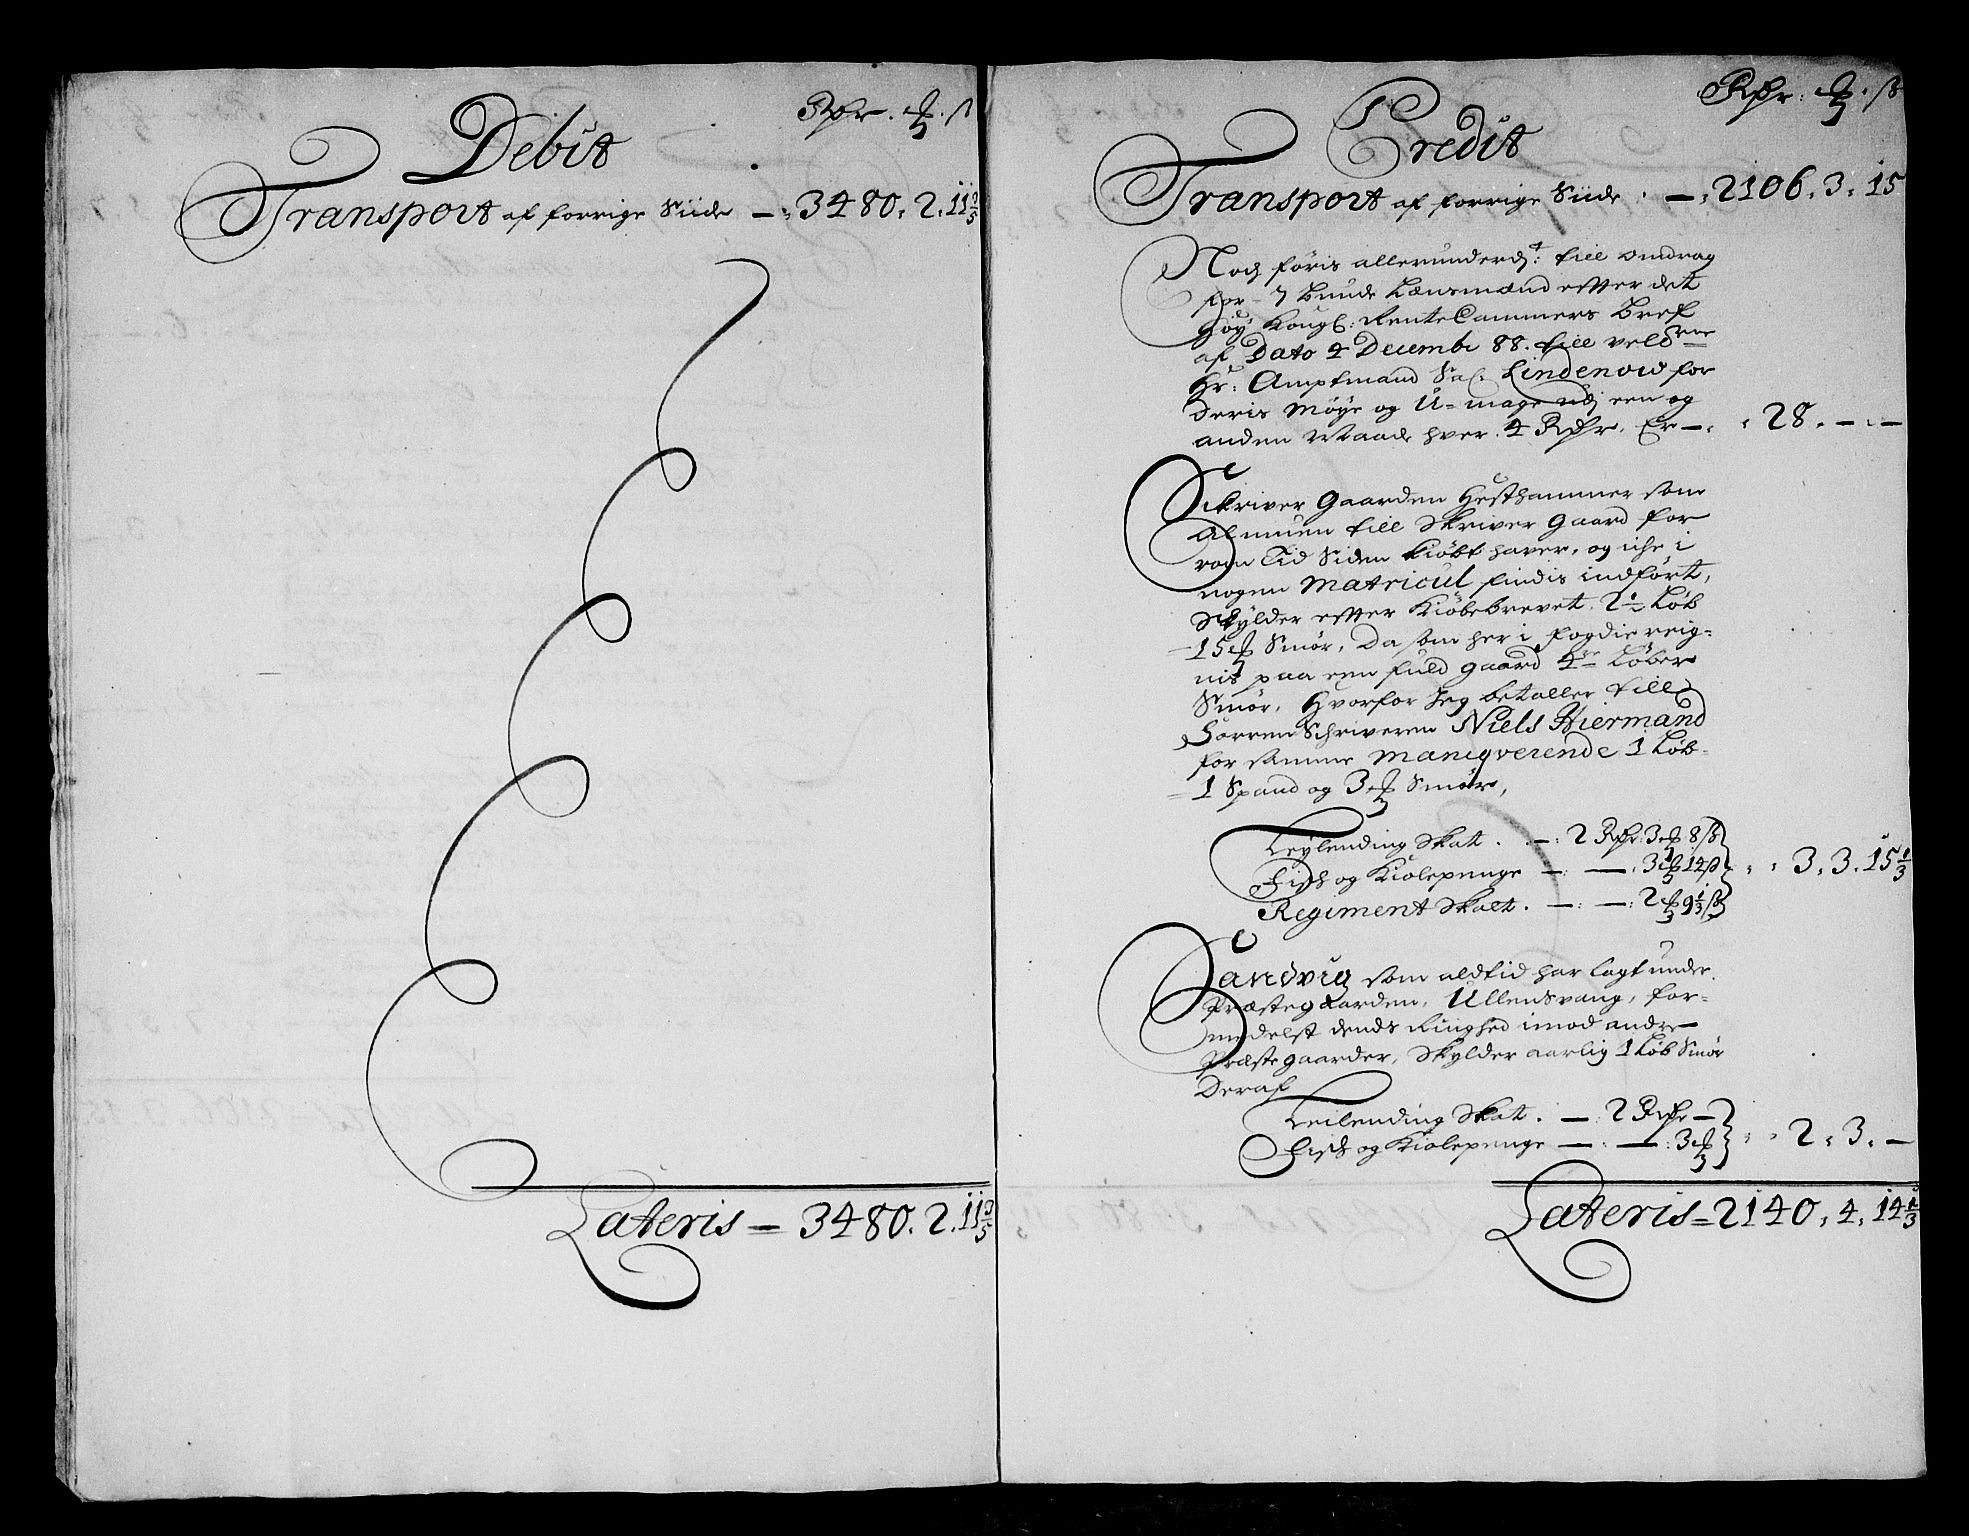 Debit
Rdr. ℔. ß
Transport af forrige Siide — 3480. 2. 11 2/5
Lateris — 3480. 2. 11 2/5
Credit
Rdr: ℔. ß
Transport af forrige Siide — 2106. 3. 15
Noch føris allerunderd: till Omdrag
for 7 Bunde Lænsmænd effter det
høÿ Kongl: Rente Cammers Bref
af Dato 4 Decembr 88. till velb
Hr: Amptmand Lindenow for
deris Møÿe og U-mage udj een og
anden Maade hver 4 Rdr. Er — 28. — —
Skriver Gaarden Hesthammer som
Almuen till Skriver Gaard for
Tid Siden kiøbt haver, og iche i
nogen Matricul findis indført,
Skylder effter Kiøbebrevet 2 1/2 Løb
15 ℔ Smør, Da som her i fogdie reig-
nis paa een fuld gaard 4re Løber
Smør, Hvorfor Jeg betaller till
Sorren Schriveren Niels Hiermand
for samme manqverende 1 Løb
1 Spand og 3 ℔ Smør,
Leylending Skat . — 2 Rdr: 3 ℔ 8 ß
Fisch og Kiolepenge — — 3 ℔ 14 ß 3. 3. 15 1/3
Regiment Skatt . — — 2 ℔ 9 1/3 ß
Sandvig som aldtid har lagt under
Præstegaarden, Ullensvang, for-
medelst dends Ringhed imod andre
Præstegaarder, Skylder aarlig 1 Løb Smør
Deraf
Leilending Skat . — 2 Rdr —
Fisch og Kiolepenge — — 3 ℔ 2. 3. —
Lateris = 2140. 4. 14 1/3